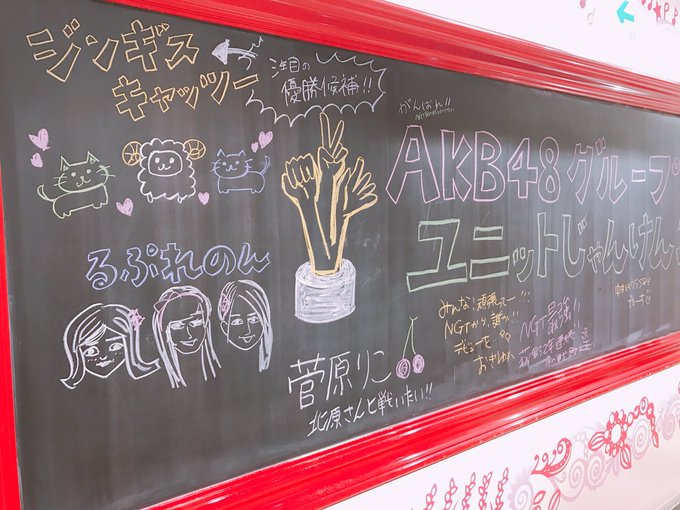 ジンギス
キャッツー
注目の
優勝候補!!
がんばれ!!
AKB48 グループ
ユニットじゃんけん
るぷれのん
菅原りこ
北原さんと戦いたい!!
みんな、頑張ろー!!
NGTから、誰か!!
デビューを
NGT最強!!